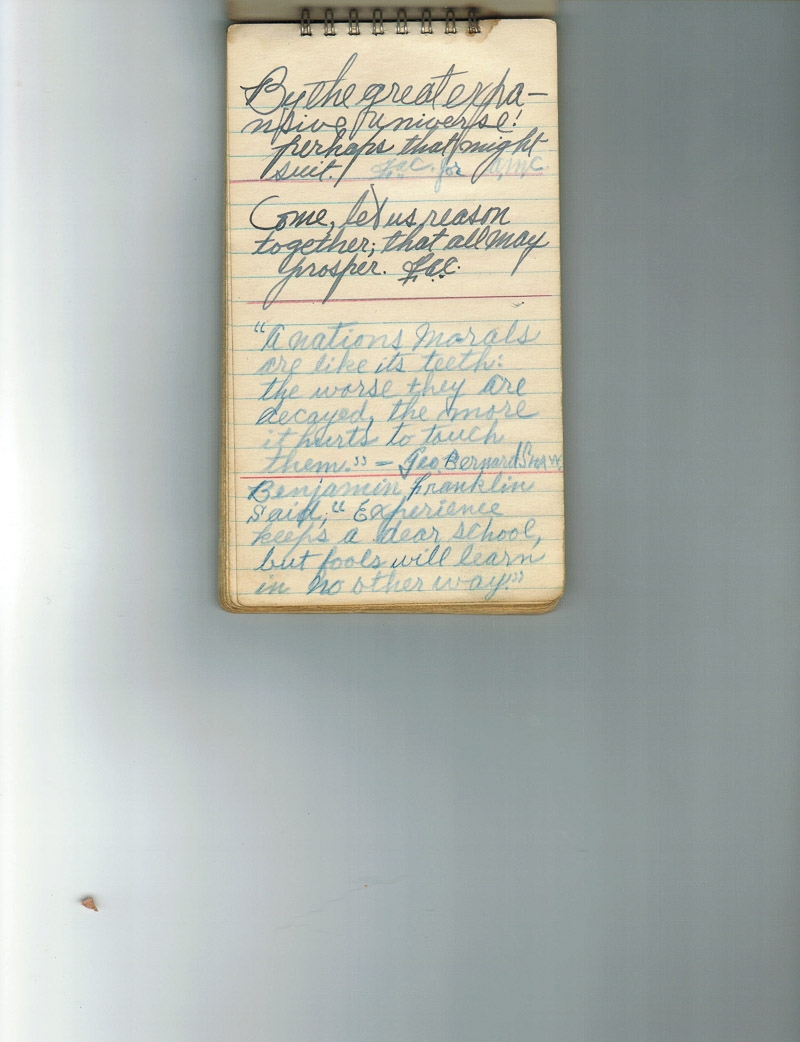 By the great expa-
nsive universe!
perhaps that might
suit. F.a.C. for a.m.c.
Come, let us reason
together; that all may
prosper. F.a.C.
"A nations Morals
are like its teeth:
the worse they are
decayed, the more
it hurts to touch
them." — Geo. Bernard Shaw
Benjamin Franklin
Said, "Experience
keeps a dear school,
but fools will learn
in no other way."